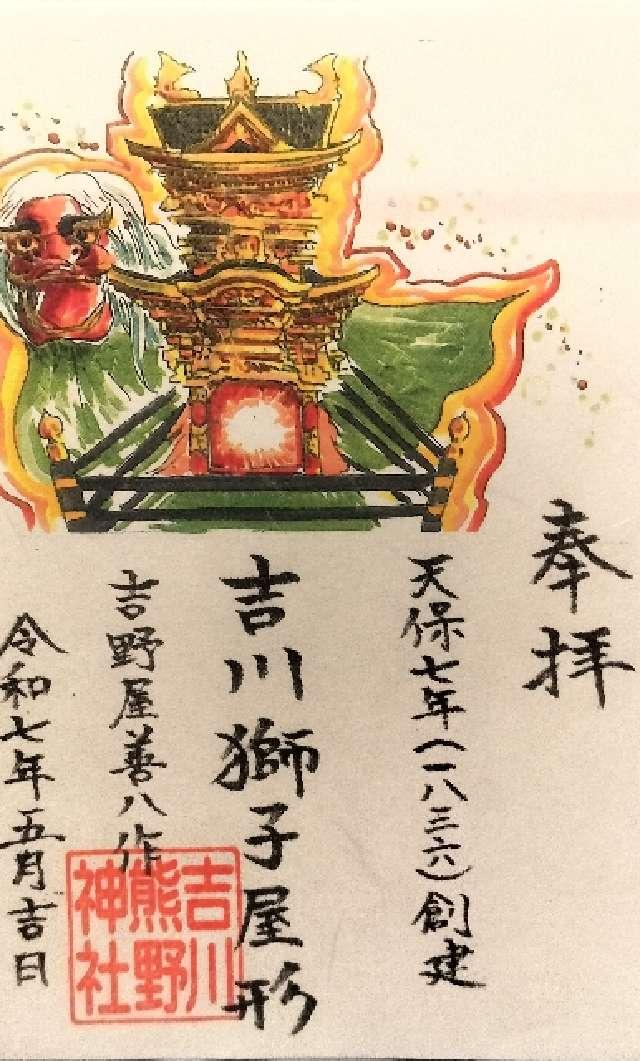 奉拝
天保七年(一八三六)創建
吉川獅子屋形
吉野屋善八作
令和七年五月吉日
吉川
熊野
神社